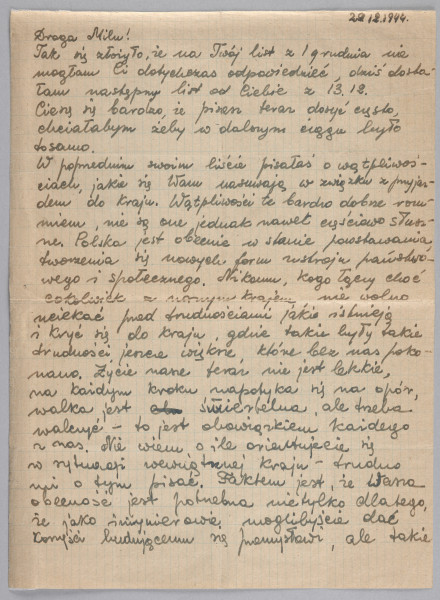 28.12.1944.
Droga Milu!
Tak się złożyło, że na Twój list z 1 grudnia nie
mogłam Ci dotychczas odpowiedzieć, dziś dosta-
łam następny list od Ciebie z 13.12.
Cieszę się bardzo, że piszesz teraz dosyć często,
chciałabym żeby w dalszym ciągu było
tosamo.
W poprzednim swoim liście pisałaś o wątpliwoś-
ciach, jakie się Wam nasuwają w związku z przyjaz-
dem do kraju. Wątpliwości te bardzo dobrze rozu-
miem, nie są one jednak nawet częściowo słusz-
ne. Polska jest obecnie w stanie powstawania,
tworzenia się nowych form ustroju państwo-
wego i społecznego. Nikomu, kogo łączy choć
cokolwiek z naszym krajem, nie wolno
uciekać przed trudnościami jakie istnieją
i kryć się do kraju, gdzie takie były takie
trudności, jeszcze większe, które bez nas poko-
nano. Życie nasze teraz nie jest lekkie,
na każdym kroku napotyka się na opór,
walka jest śmiertelna, ale trzeba
walczyć – to jest obowiązkiem każdego
z nas. Nie wiem o ile orientujecie się
w sytuacji wewnętrznej kraju – trudno
mi o tym pisać. Faktem jest, że Wasza
obecność jest potrzebna nietylko dlatego,
że jako inżynierowie moglibyście dać
korzyści budującemu się przemysłowi, ale także